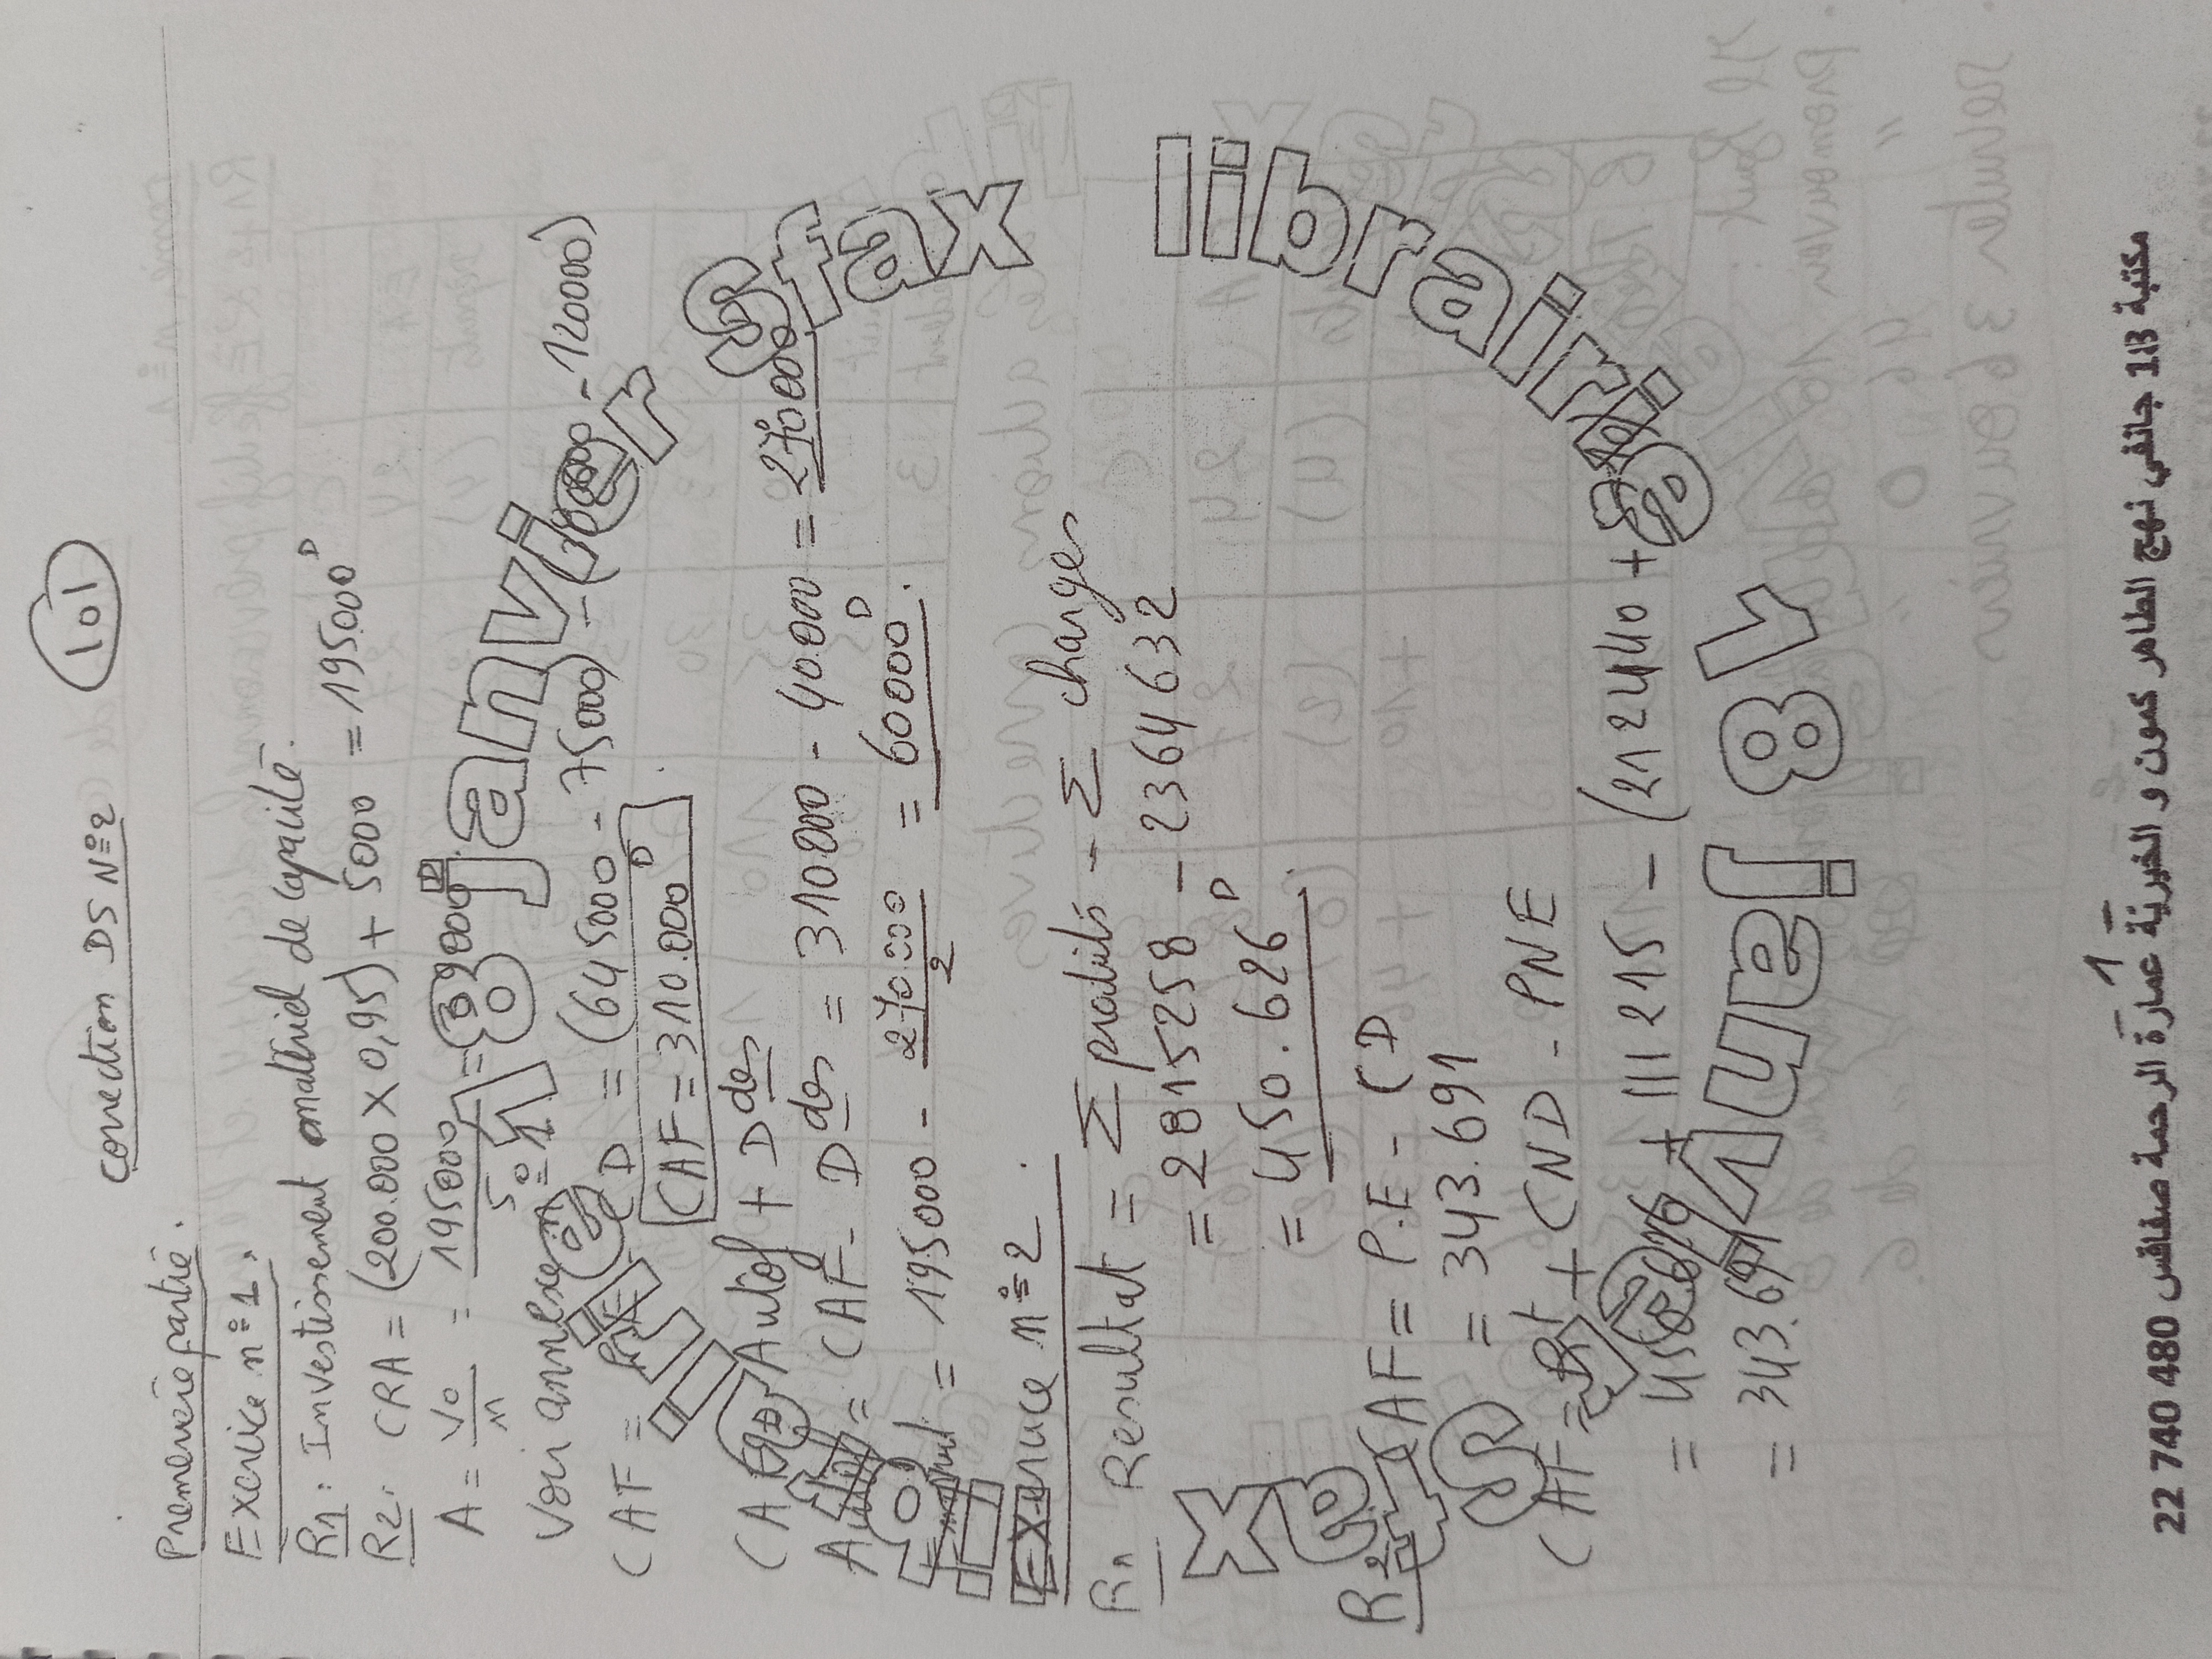 101
correction DS N°2
Première partie.
Exercice n°1.
R1: Investissement matériel de capacité.
R2: CRA = (200.000 X 0,95) + 5000 = 195000 D
A = Vo/n = 195000/5 = 39000 D
Voir annexe n°1
CAF = PE - CD = (645000 - 75000) - 120000)
CAF = 310.000 D
CAF = Autof + Ddes
Autof = CAF - Ddes = 310.000 - 40.000 = 270000
Emprunt = 195000 - 270.000/2 = 60000 D.
Exercice n°2.
R1 Resultat = Σ produits - Σ charges
= 2815258 - 2364632
= 450.626 D.
R2 CAF = P.E - CD
= 343.691
CAF = Rt + CND - PNE
= 450.626 + 111215 - (212440 +
= 343.691
18 janvier Sfax
librairie 18 janvier Sfax
librairie
مكتبة 18 جانفي نهج الطاهر كمون و الخيرية عمارة الرحمة صفاقس 480 740 22
- 1 -